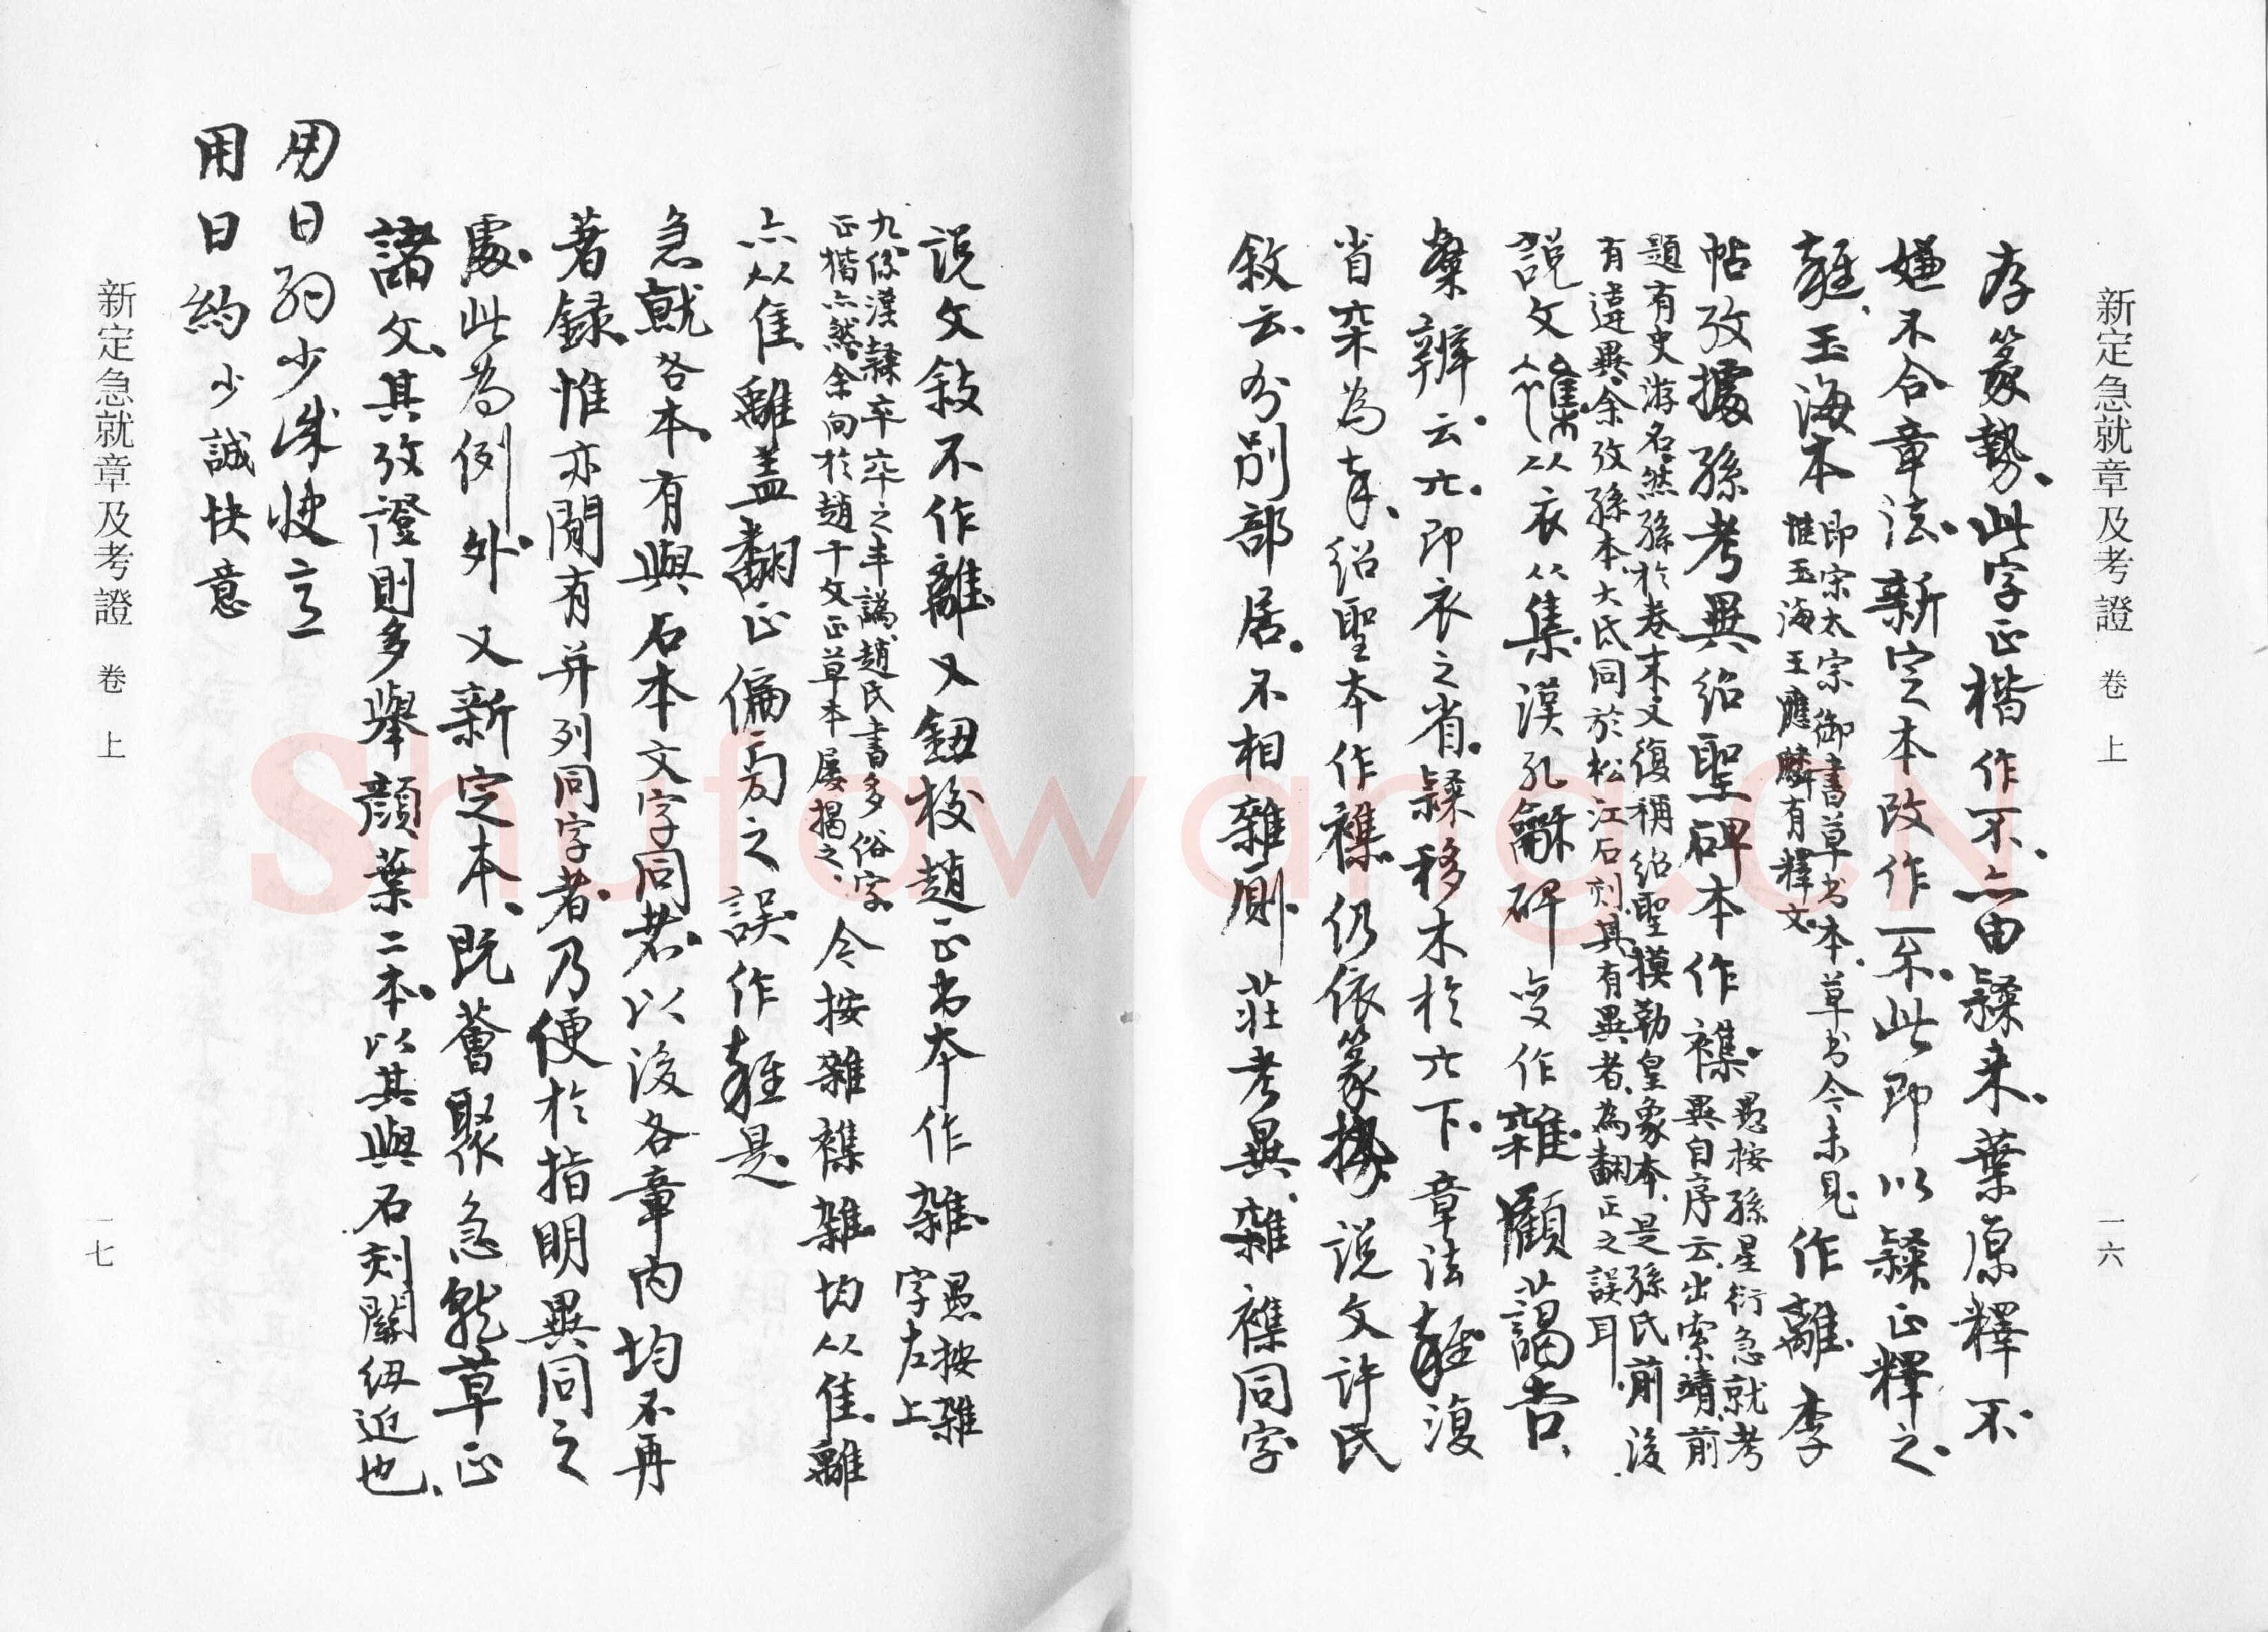 新定急就章及考證 卷上 一六
存篆勢、此字正楷作不、亦由隸来、葉原釋不
嫌不合章法、新定本改作不、此即以隸正釋之、
玉海本
即宗太宗御書草书本、草书今未見
惟玉海王應麟有釋文、
作離、李
帖攷據孫考異紹聖碑本作襍、
愚按孫星衍急就考
異自序云、出索靖、前
題有史游名、然孫於卷末又復稱紹聖摸勒皇象本、是孫氏前後
有違異、余攷孫本大氐同於松江石刻、其有異者、為翻正之誤耳、
説文 从衣从集、漢孔龢碑变作雜、顧藹吉、
隸辨云、𠅃、即衣之省、隸移木於𠅃下、章法 復
省 為 、紹聖本作襍、仍依篆势、说文许氏
敘云、分别部居、不相雜厠、莊考異、雜襍同字
说文敘不作離、又鈕校趙正书本作雜、
愚按雜
字左上
九係漢隸卒 之 譌、趙氏書多俗字、
正楷亦然、余向於趙千文正草本屢揭之、
今按雜襍雜均从隹、離
亦从隹、離盖翻正偏旁之誤、作 是
急就各本、有與石本文字同者、以後各章内均不再
著録、惟亦間有并列同字者、乃便於指明異同之
處、此為例外、又新定本、既薈聚急就草正
諸文、其攷證則多舉顔葉二本、以其與石刻關纽近也、
用日约少诚快意
用日約少誠快意
新定急就章及考證 卷上 一七
Shufawang.CN